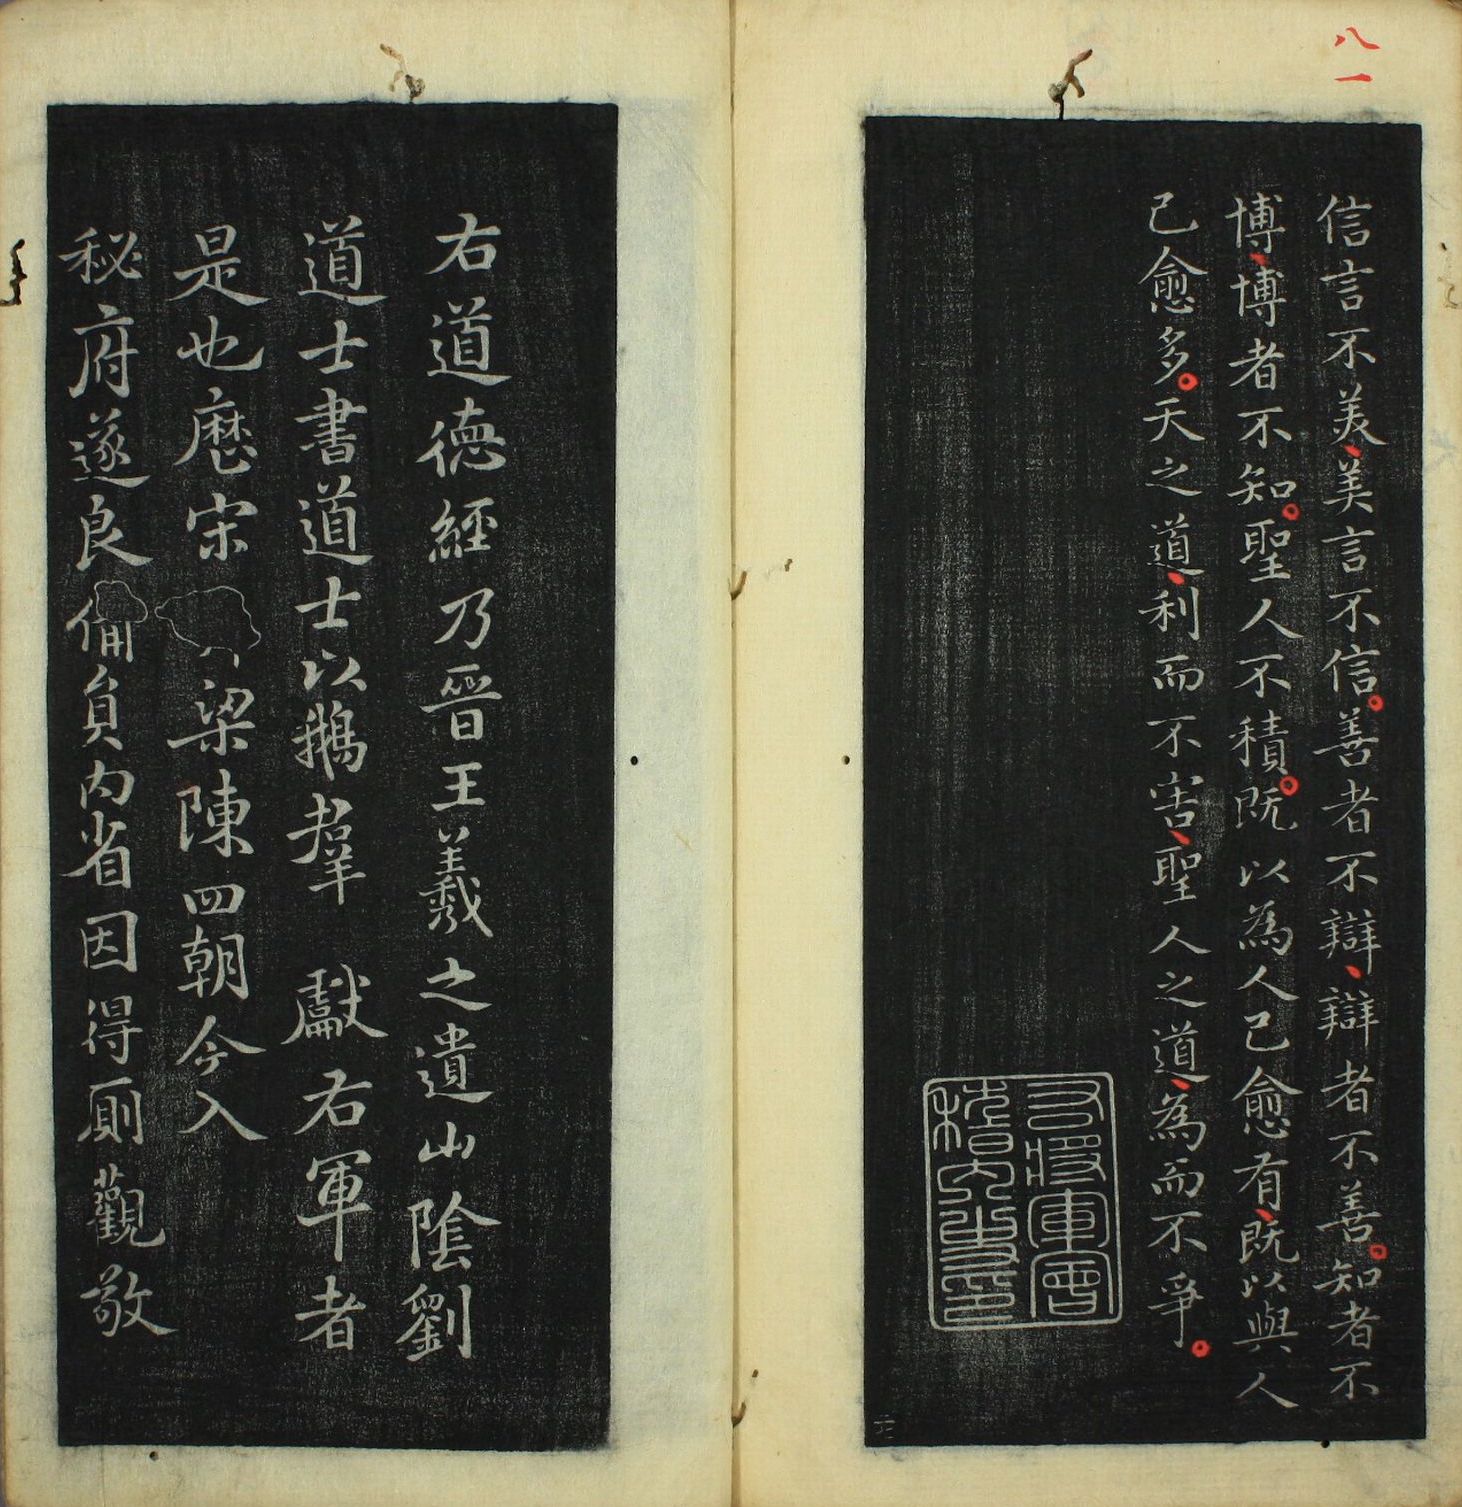 八一
信言不美美言不信善者不辯辯者不善知者不
博博者不知聖人不積既以為人己愈有既以與人
己愈多天之道利而不害聖人之道為而不爭
右將軍會
稽內史印
右道德經乃晉王羲之遺山陰劉
道士書道士以鵝群獻右軍者
是也歷宋梁陳四朝今入
秘府遂良備員內省因得廁觀敬